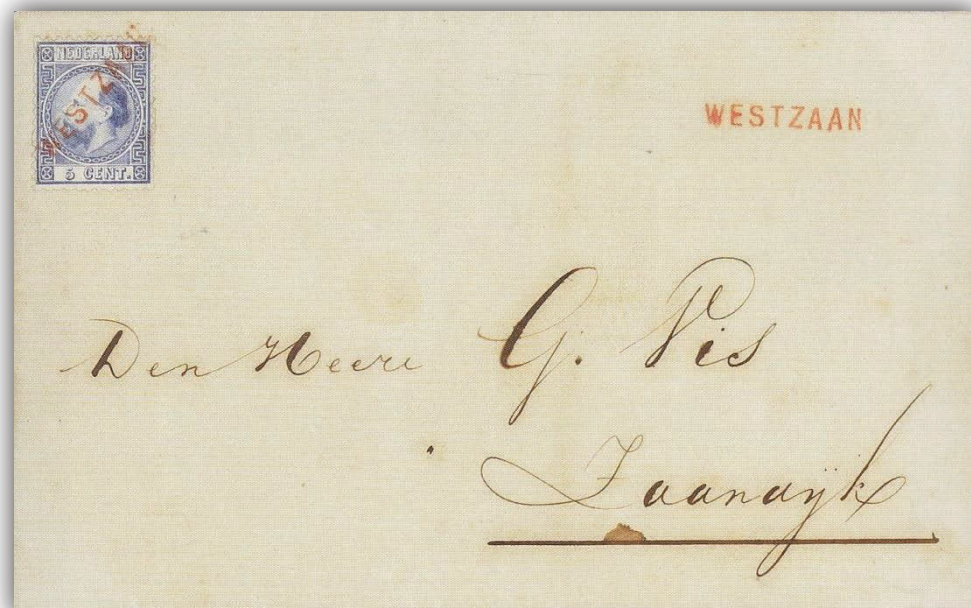 NEDERLAND
WESTZAAN
5 CENT.
WESTZAAN
Den Heere G. Vis
Zaandyk